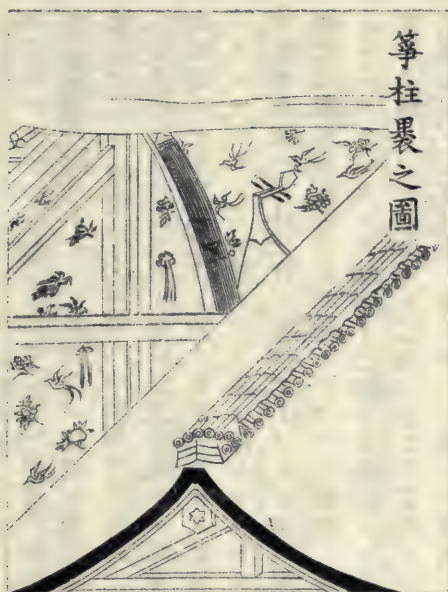 箏柱之圖